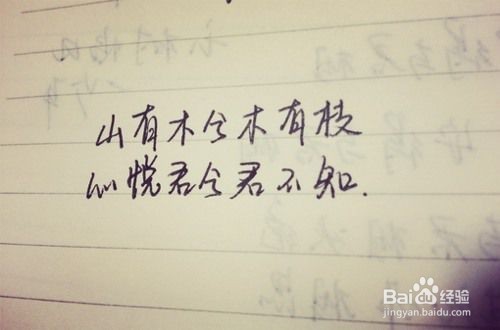 山有木兮木有枝
心悦君兮君不知.
Baidu经验
jingyan.baidu.com